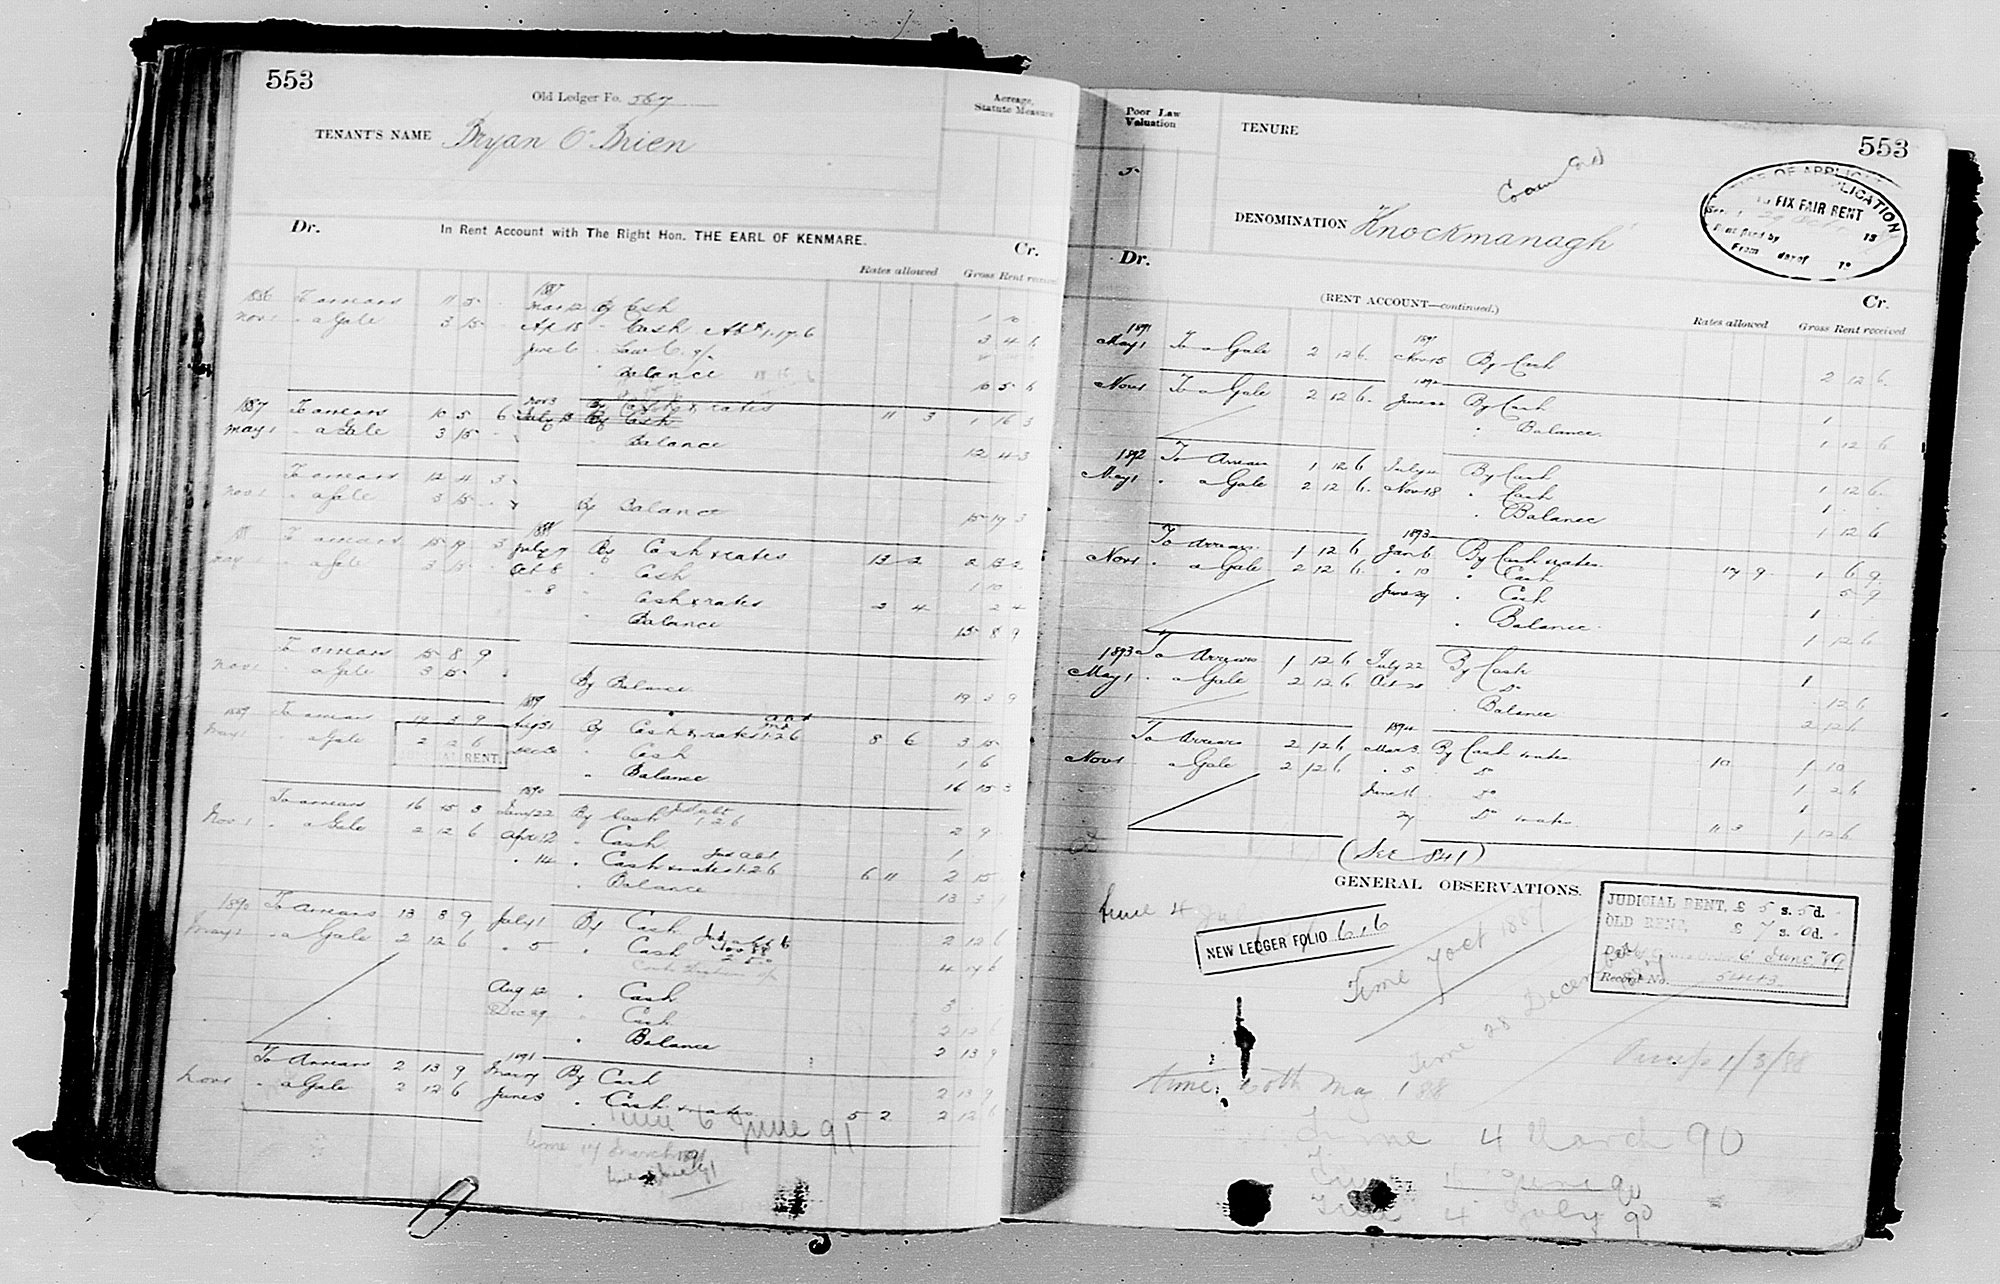 553
Old Ledger Fo. 567
Acreage, Statute Measure
TENANT'S NAME Bryan O'Brien
Dr. In Rent Account with The Right Hon. THE EARL OF KENMARE. Cr.
Rates allowed Gross Rent received
1886 To arrears 11 5 1887 Mar 12 By Cash 1 10
Nov 1 " a Gale 3 15 Ap 18 " Cash Abt 1.17.6 3 4 6
June 6 " Law C.
Balance 10 5 6
1887 To arrears 10 5 6 Nov 3 By Cash & rates 11 3 1 16 3
July 13 By Cash
May 1 " a Gale 3 15 Balance 12 4 3
To arrears 12 4 3
Nov 1 " a Gale 3 15 By Balance 15 19 3
To arrears 15 19 3 1888 July 7 By Cash & rates 13 2 2 13 2
May 1 " a Gale 3 15 Oct 8 " Cash 1 10
" 8 " Cash & rates 2 4
" Balance 15 8 9
To arrears 15 8 9
Nov 1 " a Gale 3 15 By Balance 19 3 9
1889 To arrears 19 3 9 1889 Aug 31 By Cash & rates 1.2.6 8 6 3 15
May 1 " a Gale 2 12 6 Dec 30 " Cash 1 6
RENT.
" Balance 16 15 3
1890
To arrears 16 15 3 Jany 22 By Cash 1.2.6 2 9
Nov 1 " a Gale 2 12 6 Apr 12 " Cash 1
" 14 " Cash & rates 1.2.6 6 11 2 15
" Balance
1890 To arrears 13 3 9 July 1 By Cash 2 12 6
May 1 " a Gale 2 12 6 " 5 " Cash 4 17 6
Aug 12 " Cash 3
Dec 29 " Cash 2 12 6
" Balance 2 13 9
1891
To Arrears 2 13 9 By Cash 2 13 9
Nov 1 " a Gale 2 12 6 June 3 " Cash & rates 5 2 2 12 6
time 6 June 91
time 17 March 1891
Poor Law Valuation
5
TENURE
553
DENOMINATION Knockmanagh
APPLICATION
TO FIX FAIR RENT
Rent fixed by
From day of 18
Dr. (RENT ACCOUNT—continued.) Cr.
Rates allowed Gross Rent received
1891 1891
May 1 To a Gale 2 12 6 Nov 15 By Cash 2 12 6
1892
Nov 1 To a Gale 2 12 6 June By Cash 1
" Balance 1 12 6
1892 To Arrears 1 12 6 July By Cash 1 12 6
May 1 " a Gale 2 12 6 Nov 18 " Cash 1
" Balance 1 12 6
1893
To Arrears 1 12 6 Jan 6 By Cash & rates 17 9 1 6 9
Nov 1 " a Gale 2 12 6 " 10 " Cash 5 9
June 24 " Cash 1
" Balance 1 12 6
1893 To Arrears 1 12 6 July 22 By Cash 1
May 1 " a Gale 2 12 6 Oct 20 " Do 12 6
" Balance 2 12 6
1894
To Arrears 2 12 6 Mar 3 By Cash & rates 10 1 10
Nov 1 " a Gale 2 12 6 " 5 " Do 1 2 6
June 16 " Do 1
27 Do & rates 11 3 1 12 6
(See 841)
GENERAL OBSERVATIONS.
time 4 July
NEW LEDGER FOLIO 616
JUDICIAL RENT, £ 5 s. 5 d.
OLD RENT, £ 7 s. 10 d.
6 June 89
Record No. 5443
Time 7 Oct 1887
time 28 December
1/3/88
time 20th May 88
Time 4 March 90
Time 4 June 90
Time 4 July 90